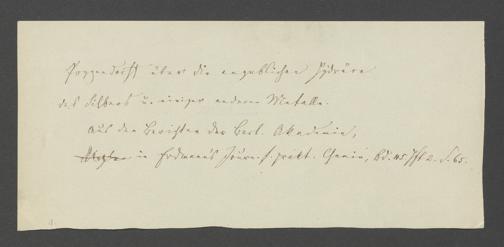 Poggendorff über die angeblichen Hydrüre
des Silbers u. einiger anderen Metalle.
Aus den Berichten der Berl. Akademie,
in Erdmann's Journ. f. prakt. Chemie, Bd. 45. Hft 2. S. 65.